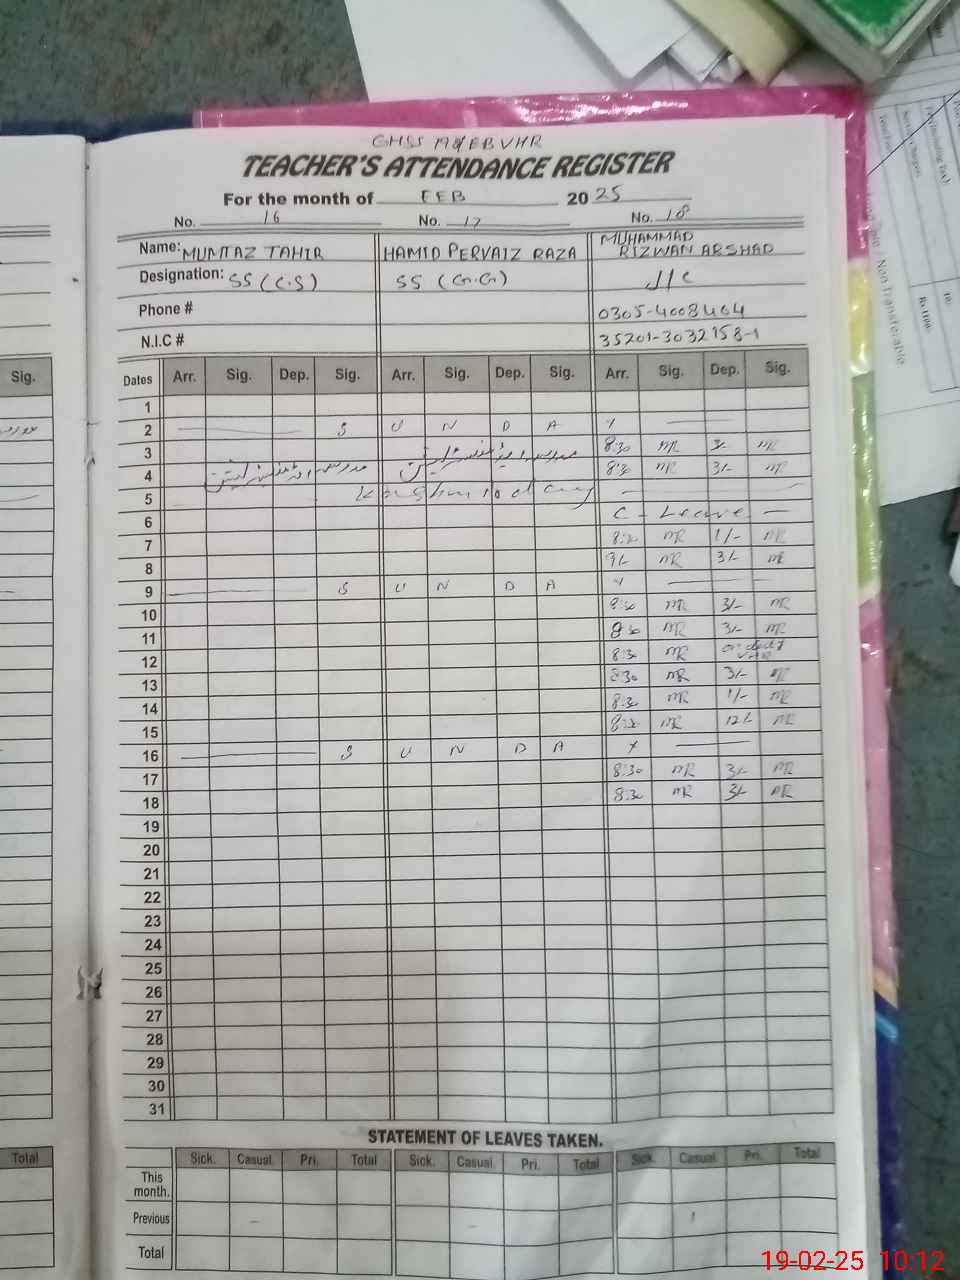 GHSS
TEACHER'S ATTENDANCE REGISTER
For the month of FEB 2025
No. 16 No. 17 No. 18
Name: MUMTAZ TAHIR HAMID PERVAIZ RAZA MUHAMMAD RIZWAN ARSHAD
Designation: SS (C.S) SS (G.G) J/C
Phone # 0305-4008464
N.I.C # 35201-3032158-1
Sig. Dates Arr. Sig. Dep. Sig. Arr. Sig. Dep. Sig. Arr. Sig. Dep. Sig.
1
2 S U N D A Y
3 8:30 MR 3/- MR
4 8:30 MR 3/- MR
5
6 C - Leave
7 MR 1/- MR
8 9/- MR 3/- MR
9 S U N D A Y
10 8:30 MR 3/- MR
11 8:30 MR 3/- MR
12 8:30 MR
13 8:30 MR 3/- MR
14 8:30 MR 1/- MR
15 8:30 MR 12/- MR
16 S U N D A Y
17 8:30 MR 3/- MR
18 8:30 MR 3/- MR
19
20
21
22
23
24
25
26
27
28
29
30
31
STATEMENT OF LEAVES TAKEN.
Total Sick. Casual. Pri. Total Sick. Casual. Pri. Total Sick. Casual. Pri. Total
This month.
Previous - - 1
Total
Non Transferable
Rs.1100/
19-02-25 10:12